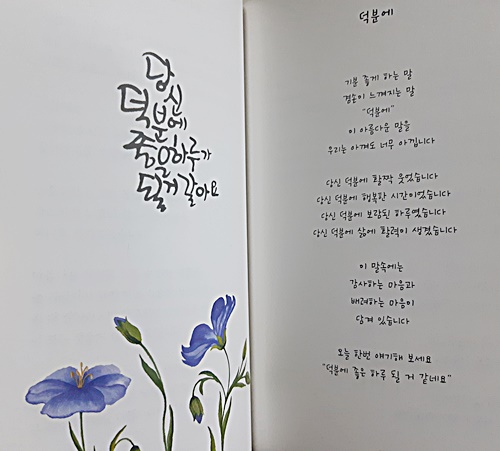 당신
덕분에
좋은하루가
될거같아요
덕분에
기분 좋게 하는 말
겸손이 느껴지는 말
"덕분에"
이 아름다운 말을
우리는 아껴도 너무 아낍니다
당신 덕분에 활짝 웃었습니다
당신 덕분에 행복한 시간이었습니다
당신 덕분에 보람된 하루였습니다
당신 덕분에 삶에 활력이 생겼습니다
이 말속에는
감사하는 마음과
배려하는 마음이
담겨 있습니다
오늘 한번 얘기해 보세요
"덕분에 좋은 하루 될 거 같네요"